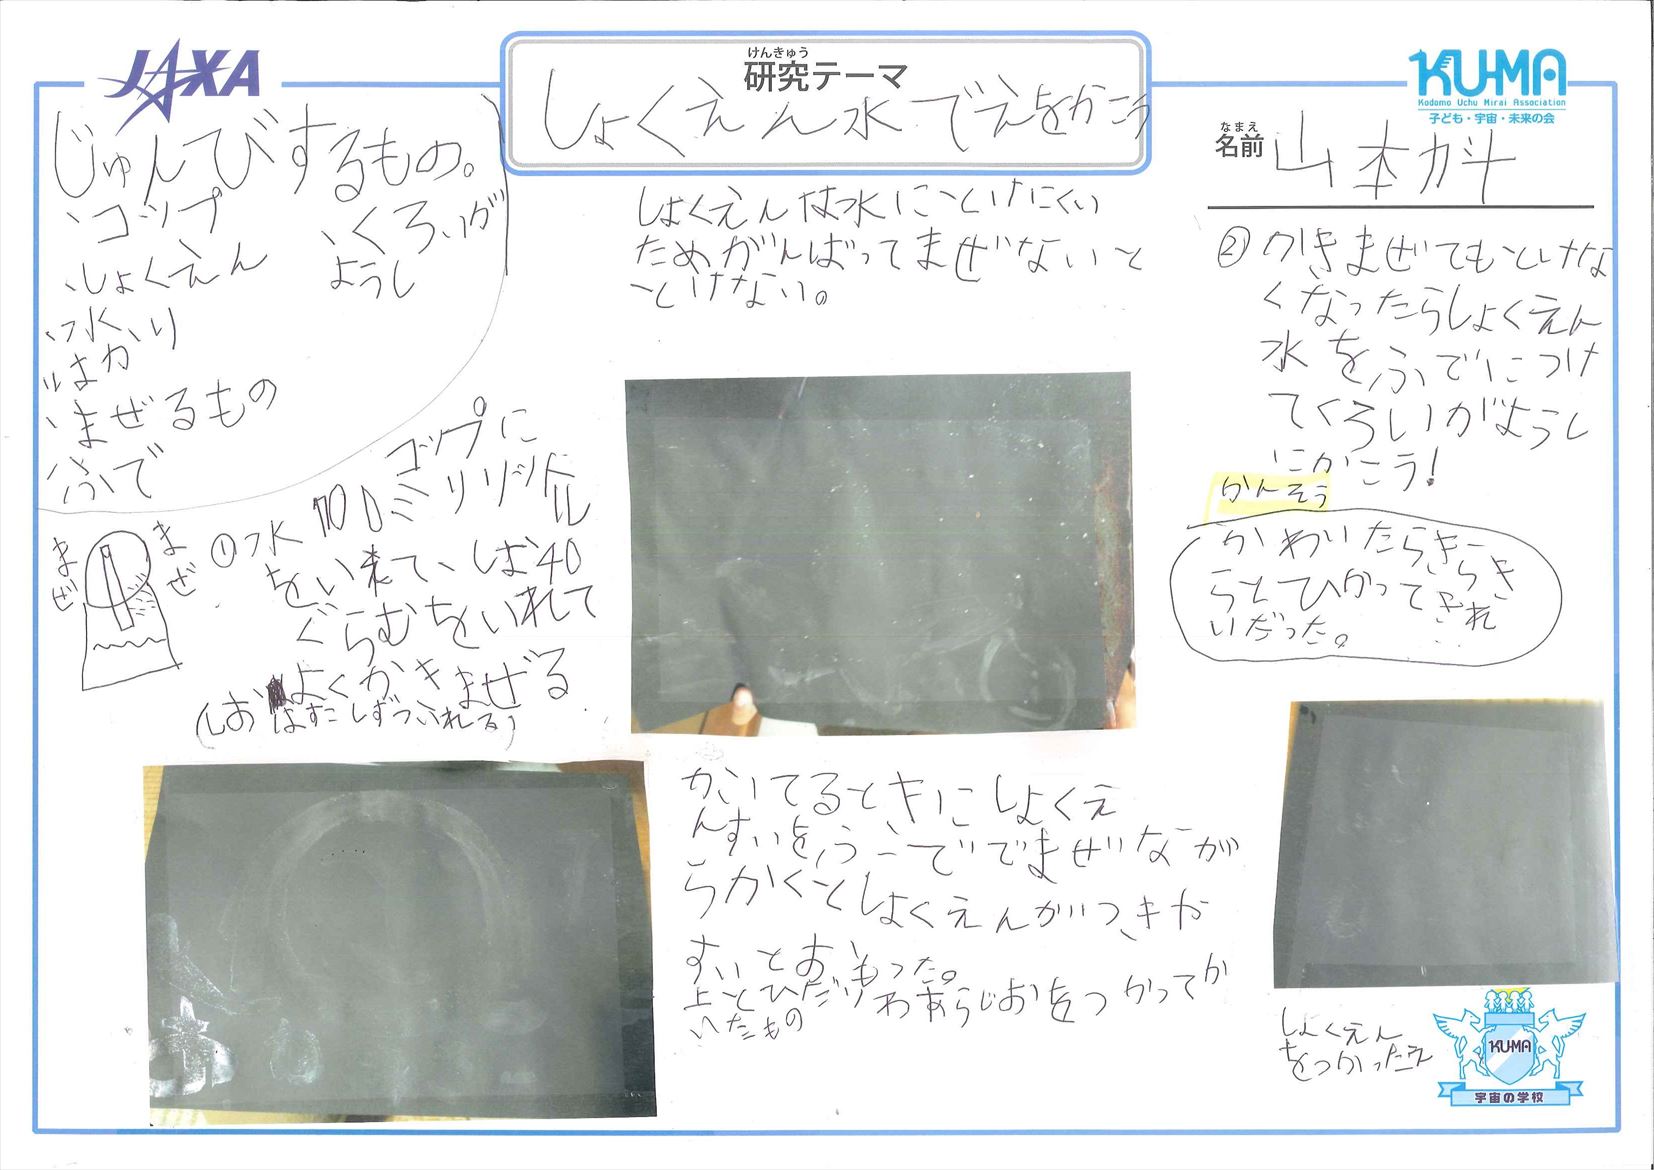 JAXA
けんきゅう
研究テーマ
しょくえん水でえをかこう
KU-MA
Kodomo Uchu Mirai Association
子ども・宇宙・未来の会
なまえ
名前 山本
じゅんびするもの。
、コップ
、しょくえん
、水
、はかり
、まぜるもの
、ふで
、くろいが
ようし
しょくえんは水にとけにくい
ためがんばってまぜないと
とけない。
まぜ
まぜ
コップに
①水100ミリリットル
をい来て、しお40
ぐらむをいれて
よくかきまぜる
(しおはすこしずついれる)
②かきまぜてもとけな
くなったらしょくえん
水をふでにつけ
てくろいがようし
にかこう!
かんそう
かわいたらきー
らきら
とひかってきれ
いだった。
かいてるときにしょくえ
んすいをふででまぜなが
らかくとしょくえんがつきや
すいとおもった。
上とひだりわあらじおをつかってか
いたもの
しょくえん
をつかったえ
KU-MA
宇宙の学校